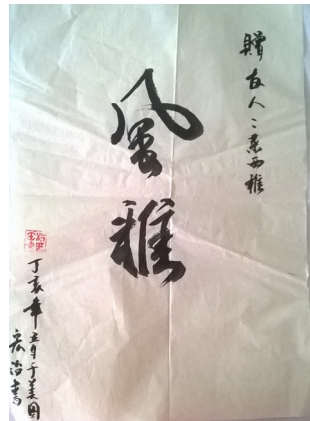 贈友人西雅
風雅
丁亥年五月于美国
治書